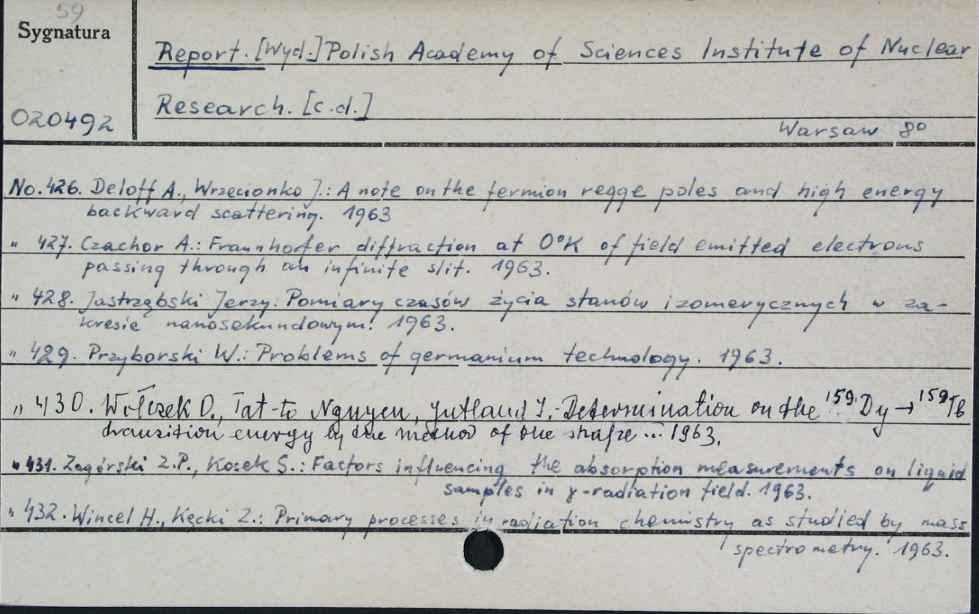 59
Sygnatura
Report. [Wyd.] Polish Academy of Sciences Institute of Nuclear
Research. [c.d.]
020492
Warsaw 8º
No. 426. Deloff A., Wrzecionko J.: A note on the fermion regge poles and high energy
backward scattering. 1963
" 427. Czachor A.: Fraunhofer diffraction at 0°K of field emitted electrons
passing through an infinite slit. 1963.
" 428. Jastrzębski Jerzy: Pomiary czasów życia stanów izomerycznych w za-
kresie nanosekundowym. 1963.
" 429. Przyborski W.: Problems of germanium technology. 1963.
" 430. Wołczek O., Tat-to Nguyen, Jutland J.: Determination on the ¹⁵⁹Dy → ¹⁵⁹Tb
transition energy by the method of the shape ... 1963.
" 431. Zagórski Z.P., Kosek S.: Factors influencing the absorption measurements on liquid
samples in γ-radiation field. 1963.
" 432. Wincel H., Kęcki Z.: Primary processes in radiation chemistry as studied by mass
spectrometry. 1963.